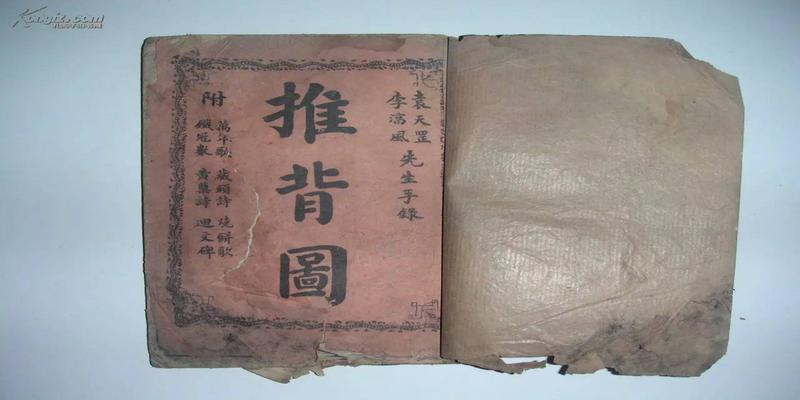 Kongfz.com
袁天罡
李淳風
先生手錄
推背圖
附
萬年歌 藏頭詩 燒餅歌
鐵冠數 黄蘗詩 迴文碑